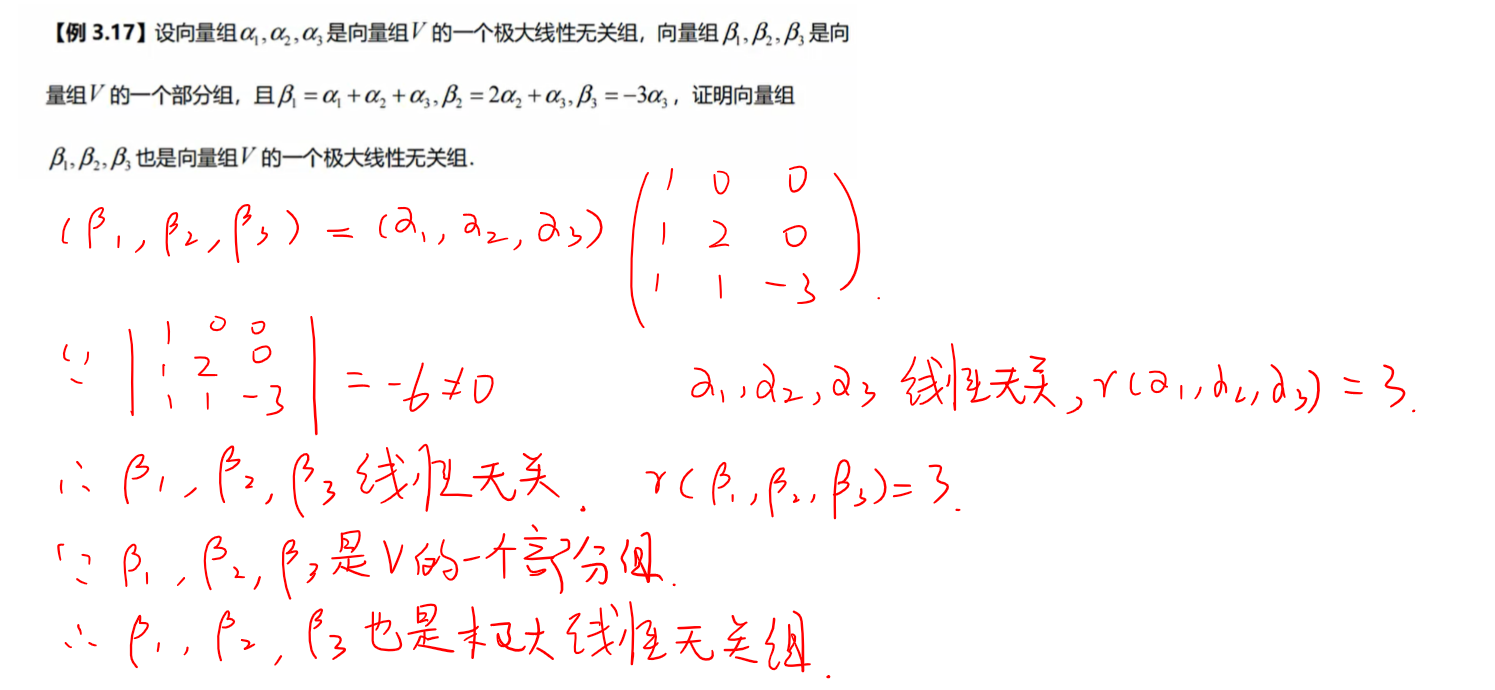 【例 3.17】设向量组α₁,α₂,α₃是向量组V 的一个极大线性无关组，向量组β₁,β₂,β₃是向
量组V 的一个部分组，且β₁=α₁+α₂+α₃,β₂=2α₂+α₃,β₃=−3α₃，证明向量组
β₁,β₂,β₃也是向量组V 的一个极大线性无关组.
(β₁,β₂,β₃) = (α₁,α₂,α₃) (1 0 0
1 2 0
1 1 -3).
∵ |1 0 0
1 2 0
1 1 -3| = -6≠0 α₁,α₂,α₃ 线性无关,r(α₁,α₂,α₃) = 3.
∴ β₁,β₂,β₃ 线性无关. r(β₁,β₂,β₃)=3.
∵ β₁,β₂,β₃是V的一个部分组.
∴ β₁,β₂,β₃也是极大线性无关组.